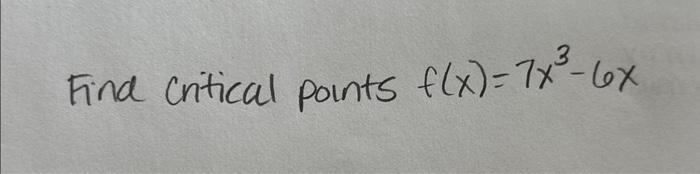 Find critical points f(x)=7x³-6x